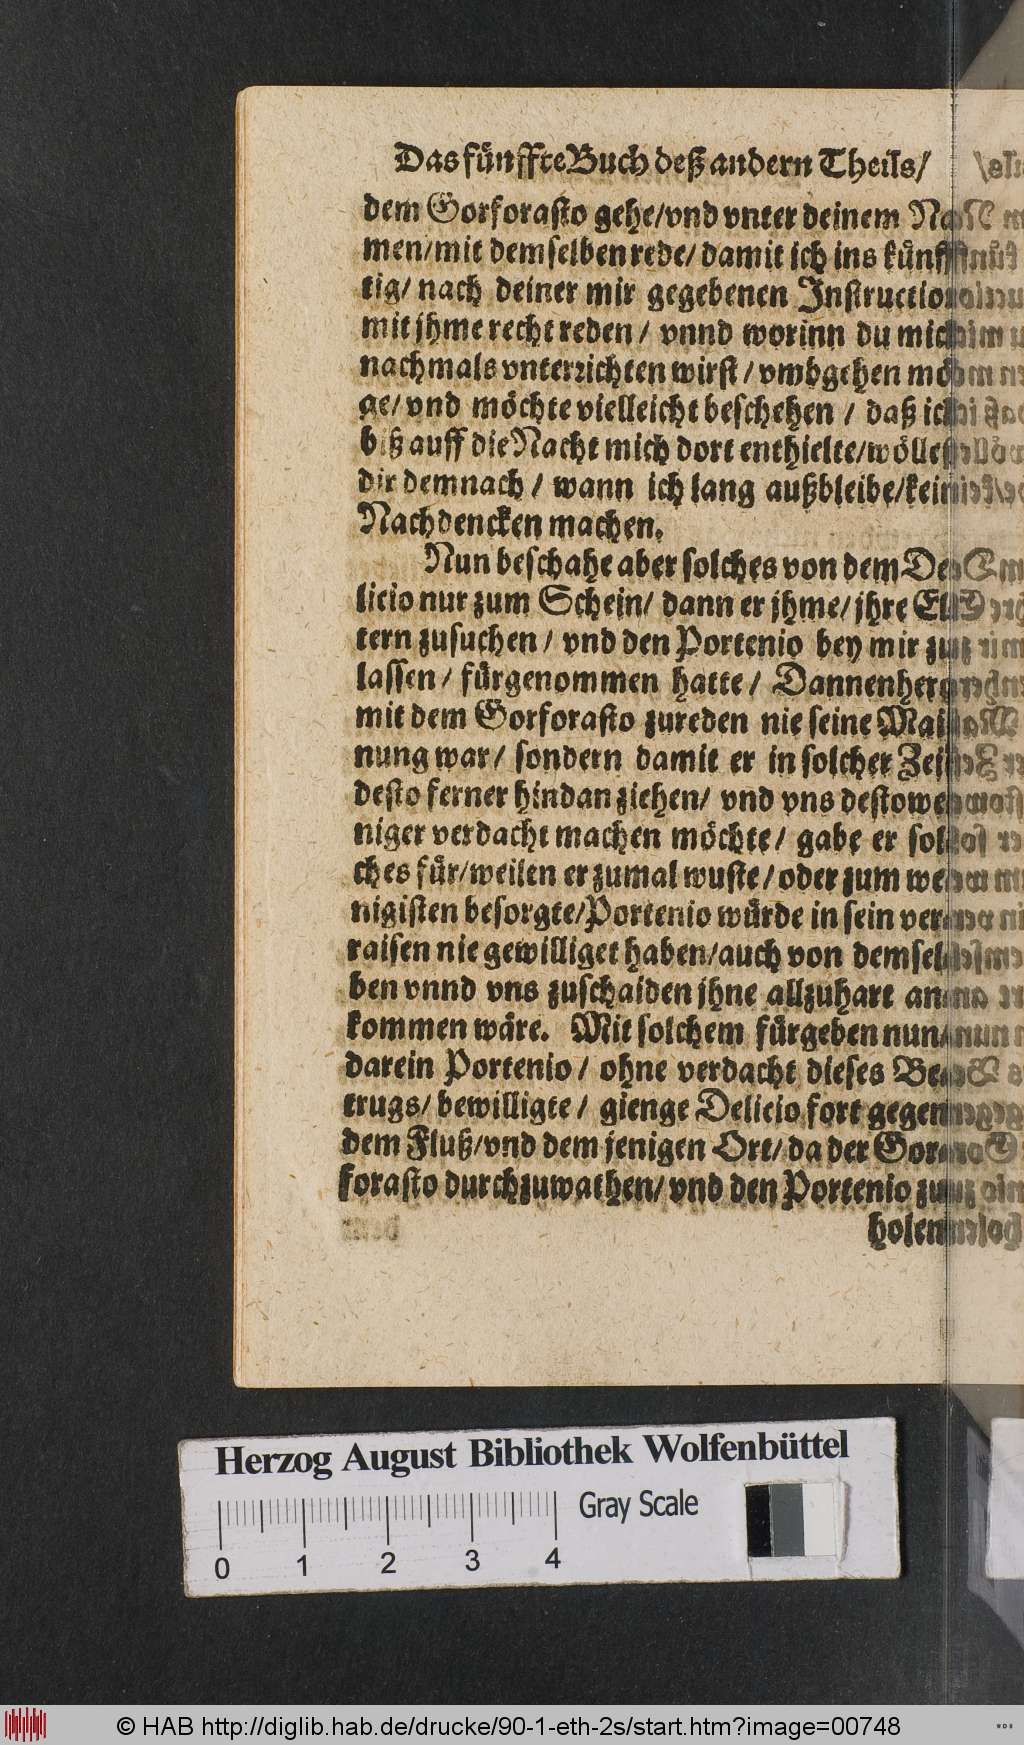 Das fünffte Buch deß andern Theils/
dem Gorforasto gehe/vnd vnter deinem Na-
men/mit demselben rede/ damit ich ins künff-
tig/ nach deiner mir gegebenen Instruction
mit jhme recht reden / vnnd worinn du mich
nachmals vnterrichten wirst / vmbgehen mö-
ge/ vnd möchte vielleicht beschehen / daß ich
biß auff die Nacht mich dort enthielte/wöllest
dir demnach / wann ich lang außbleibe/kein
Nachdencken machen.
Nun beschahe aber solches von dem De-
licio nur zum Schein/ dann er jhme/ jhre El-
tern zusuchen / vnd den Portenio bey mir zu-
lassen / fürgenommen hatte / Dannenhero
mit dem Gorforasto zureden nie seine Mai-
nung war/ sondern damit er in solcher Zeit
desto ferner hindan ziehen/ vnd vns destowe-
niger verdacht machen möchte / gabe er sol-
ches für/weilen er zumal wuste/oder zum we-
nigisten besorgte/Portenio würde in sein ver-
raisen nie gewilliget haben/auch von demsel-
ben vnnd vns zuschaiden jhne allzuhart an-
kommen wäre. Mit solchem fürgeben nun/
darein Portenio / ohne verdacht dieses Be-
trugs/ bewilligte / gienge Delicio fort gegen
dem Fluß/vnd dem jenigen Ort/ da der Gor-
forasto durchzuwathen/ vnd den Portenio zu-
holen
Herzog August Bibliothek Wolfenbüttel
Gray Scale
0 1 2 3 4
© HAB http://diglib.hab.de/drucke/90-1-eth-2s/start.htm?image=00748